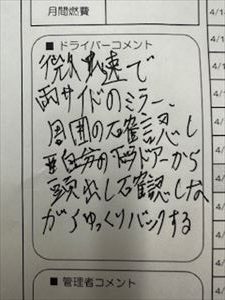 月間燃費
4/1
4/1
4/
■ ドライバーコメント
微久速で
両サイドのミラー、
周囲の確認し
自分のドアーから
頭出し確認しな
がらゆっくりバックする
■ 管理者コメント